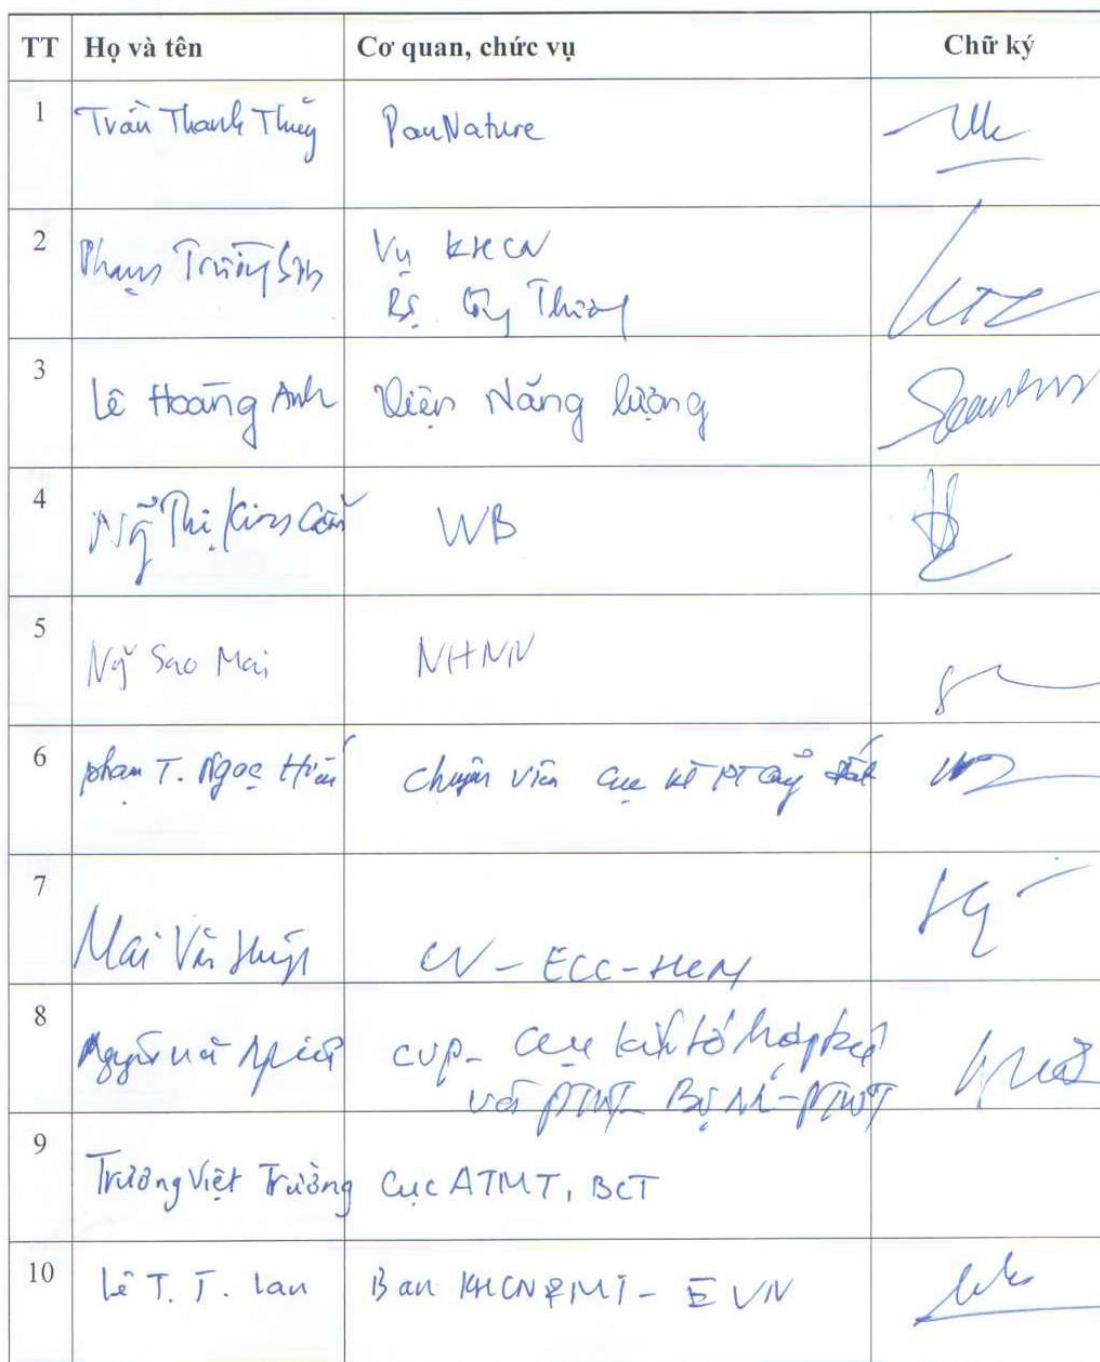 TT Họ và tên Cơ quan, chức vụ Chữ ký
1 Trần Thanh Thủy PanNature
2 Phạm Trường Sơn Vụ KHCN
Bộ Công Thương
3 Lê Hoàng Anh Viện Năng lượng
4 Ng~ Thị Kim WB
5 Ng~ Sao Mai NHNN
6 Phạm T. Ngọc chuyên viên cục
7 Mai Văn CV - ECC - HCM
8 Nguyễn CVP - Cục kinh tế hợp tác
và PTNT - Bộ NN - PTNT
9 Trương Việt Trường Cục ATMT, BCT
10 Lê T. T. Lan Ban KHCN&MT - EVN